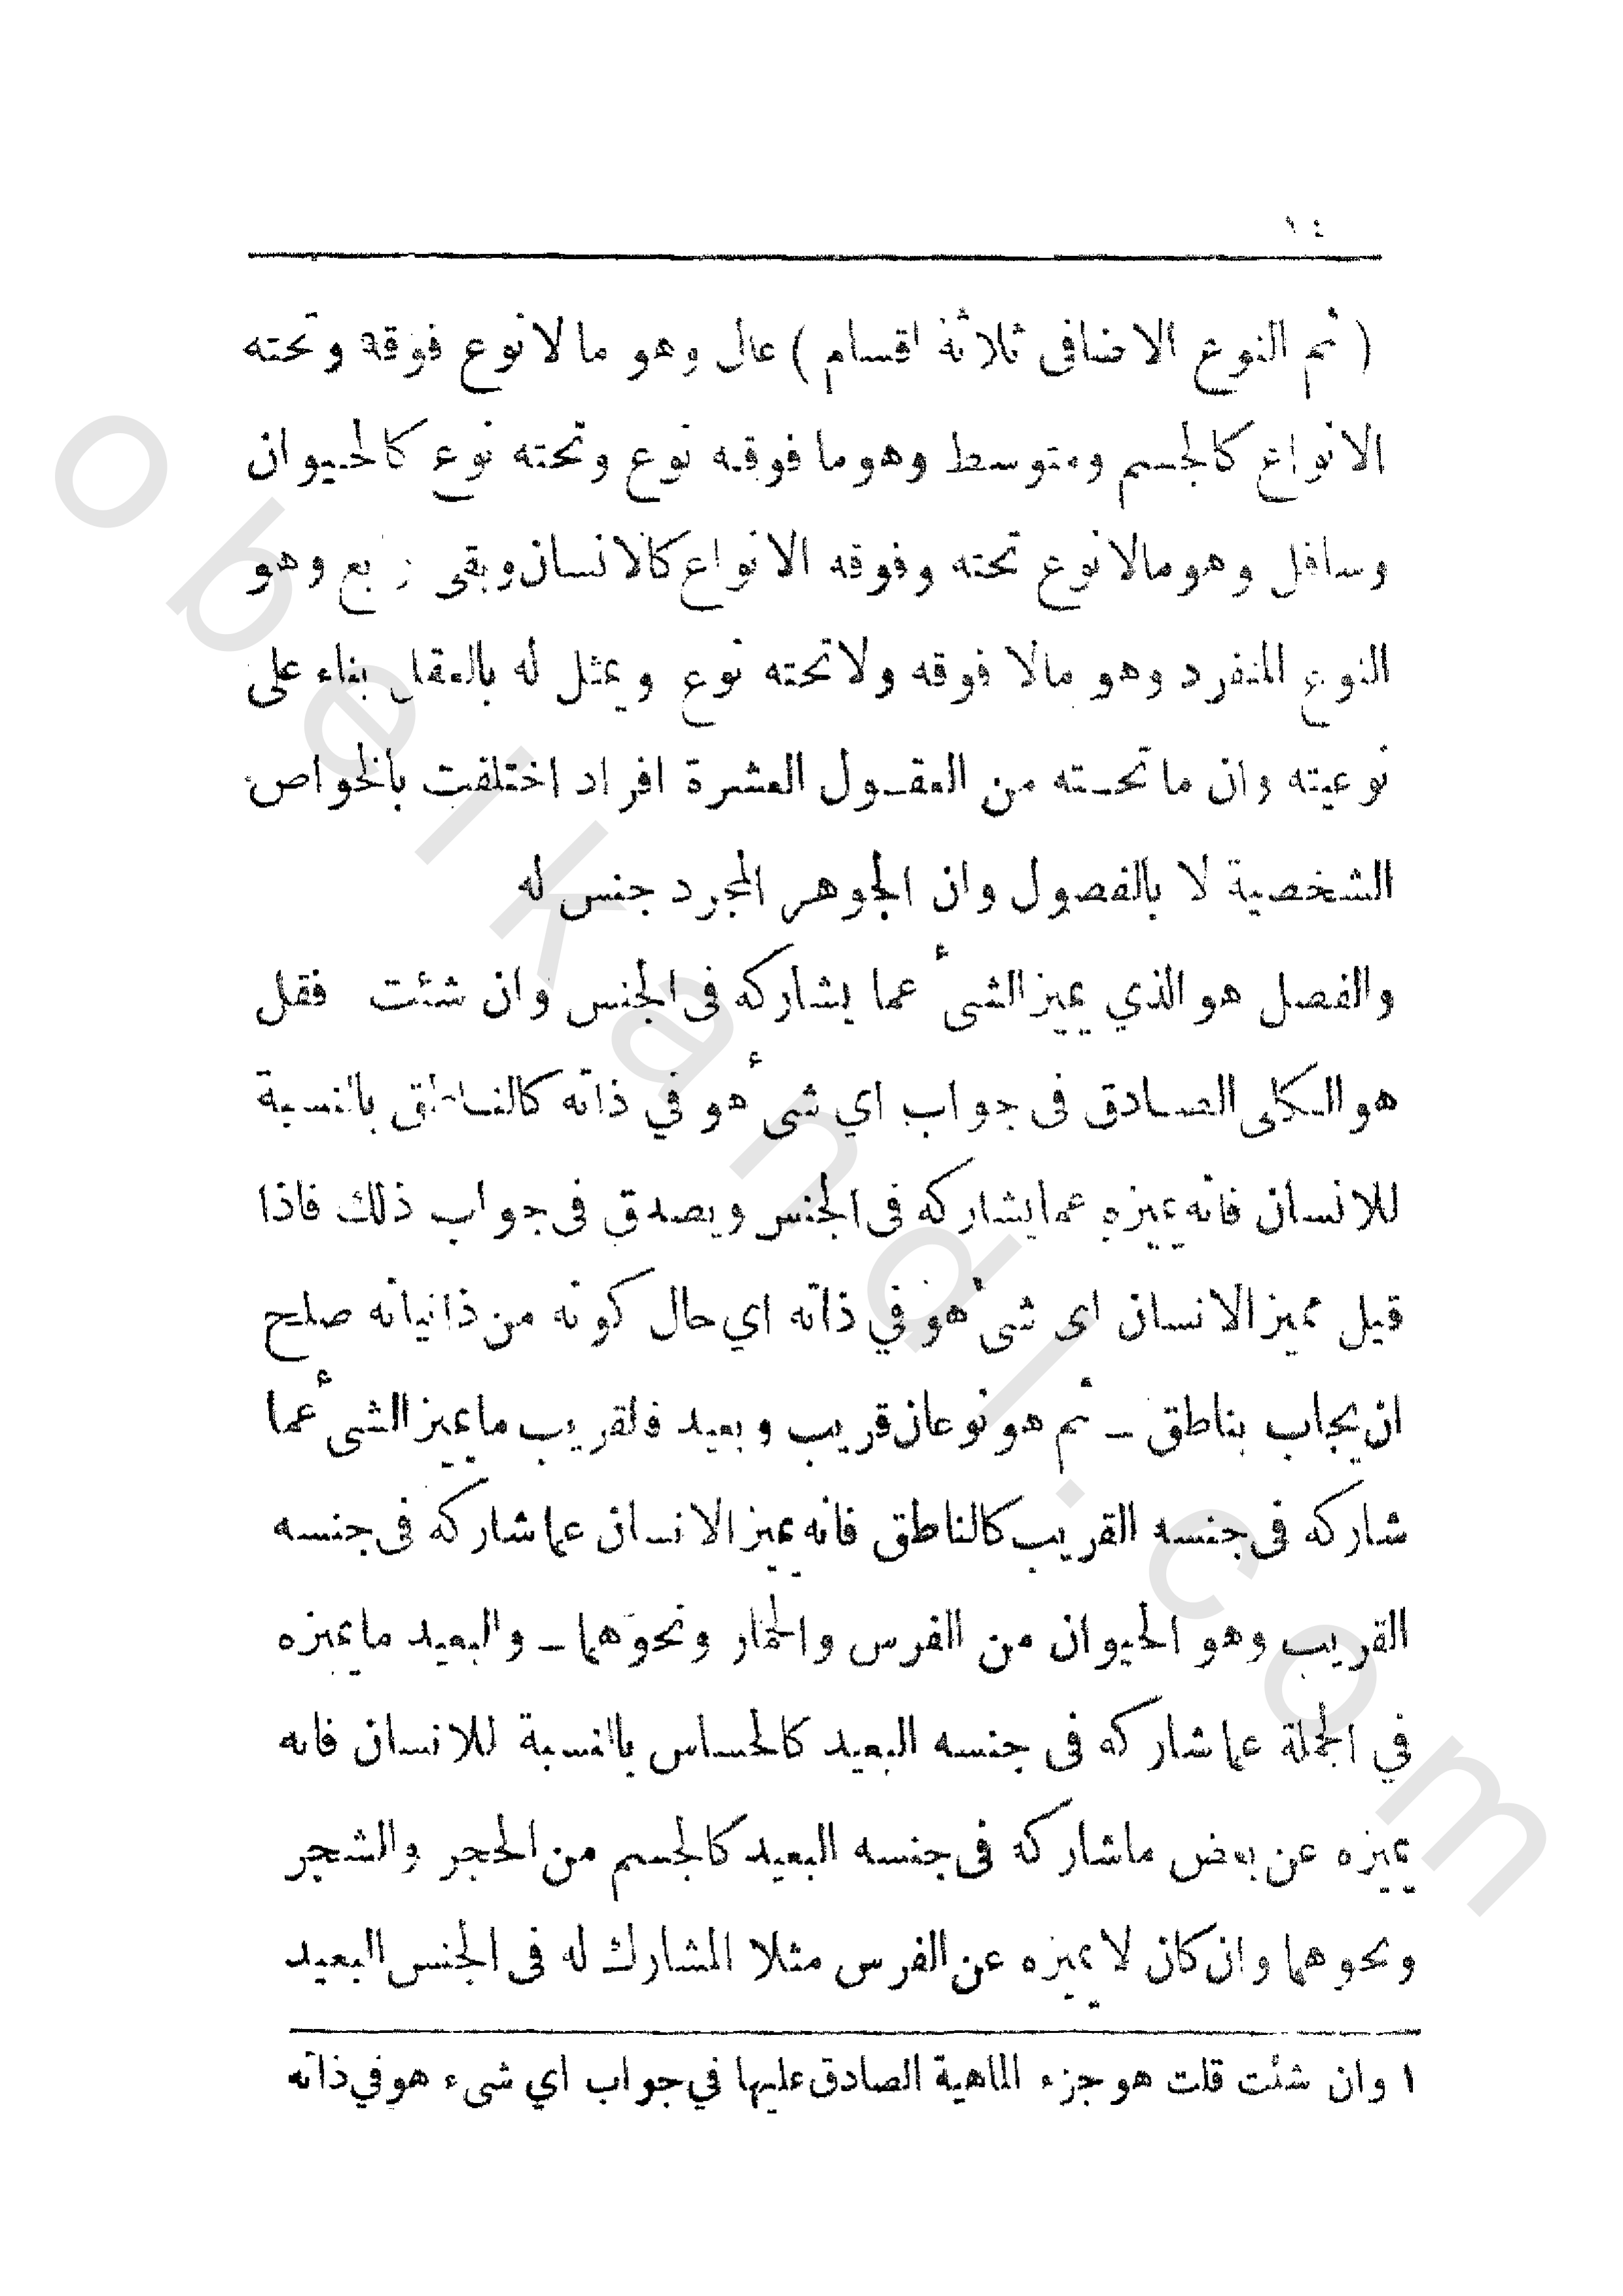 ١٤
( ثم النوع الاضافى ثلاثة اقسام ) عال وهو ما لا نوع فوقه وتحته
الانواع كالجسم ومتوسط وهو ما فوقه نوع وتحته نوع كالحيوان
وسافل وهو مالا نوع تحته وفوقه الانواع كالانسان وبقى رابع وهو
النوع المنفرد وهو مالا فوقه ولا تحته نوع ويمثل له بالعقل بناء على
نوعيته وان ما تحته من العقول العشرة افراد اختلفت بالخواص
الشخصية لا بالفصول وان الجوهر المجرد جنس له
والفصل هو الذي يميز الشىء عما يشاركه فى الجنس وان شئت فقل
هو الكلى الصادق فى جواب اي شىء هو في ذاته كالناطق بالنسبة
للانسان فانه يميزه عما يشاركه فى الجنس ويصدق فى جواب ذلك فاذا
قيل مميز الانسان اى شىء هو في ذاته اي حال كونه من ذاتياته صلح
ان يجاب بناطق ــ ثم هو نوعان قريب وبعيد فالقريب ما يميز الشىء عما
شاركه فى جنسه القريب كالناطق فانه يميز الانسان عما شاركه فى جنسه
القريب وهو الحيوان من الفرس والحمار ونحوهما ــ والبعيد ما يميزه
في الجملة عما شاركه فى جنسه البعيد كالحساس بالنسبة للانسان فانه
يميزه عن بعض ما شاركه فى جنسه البعيد كالجسم من الحجر والشجر
ونحوهما وان كان لا يميزه عن الفرس مثلا المشارك له فى الجنس البعيد
١ وان شئت قلت هو جزء الماهية الصادق عليها في جواب اي شىء هو في ذاته
obeikandl.com